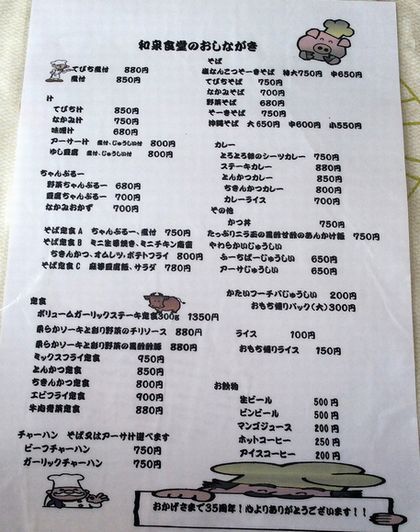 和泉食堂のおしながき
てびち煮付 880円
煮付 850円
汁
てびち汁 850円
なかみ汁 750円
味噌汁 680円
アーサー汁 煮付、じゅうしい付 800円
ゆし豆腐 煮付、じゅうしい付 800円
ちゃんぷるー
野菜ちゃんぷるー 680円
豆腐ちゃんぷるー 700円
なかみおかず 700円
そば定食A ちゃんぷるー、煮付 750円
そば定食B ミニ生姜焼き、ミニチキン南蛮
ちきんかつ、オムレツ、ポテトフライ 800円
そば定食C 麻婆豆腐飯、サラダ 780円
定食
ボリュームガーリックステーキ定食300g 1350円
柔らかソーキと彩り野菜のチリソース 880円
柔らかソーキと彩り野菜の 880円
ミックスフライ定食 950円
とんかつ定食 850円
ちきんかつ定食 800円
エビフライ定食 900円
牛肉野菜定食 880円
チャーハン そば又はアーサ汁選べます
ビーフチャーハン 750円
ガーリックチャーハン 750円
そば
塩なんこつそーきそば 特大750円 中650円
てびちそば 750円
なかみそば 700円
野菜そば 680円
そーきそば 750円
沖縄そば 大650円 中600円 小550円
カレー
とろとろ豚のシーツカレー 750円
ステーキカレー 880円
とんかつカレー 850円
ちきんかつカレー 850円
カレーライス 700円
その他
かつ丼 750円
たっぷりニラ玉の あんかけ飯 750円
やわらかいじゅうしい
ふーちばーじゅうしい 650円
アーサじゅうしい 650円
かたいフーチバじゅうしい 200円
おもち帰りパック(大) 300円
ライス 100円
おもち帰りライス 150円
お飲物
生ビール 500円
ビンビール 500円
マンゴジュース 200円
ホットコーヒー 200円
アイスコーヒー 250円
おかげさまで35周年!心よりありがとうございます!!